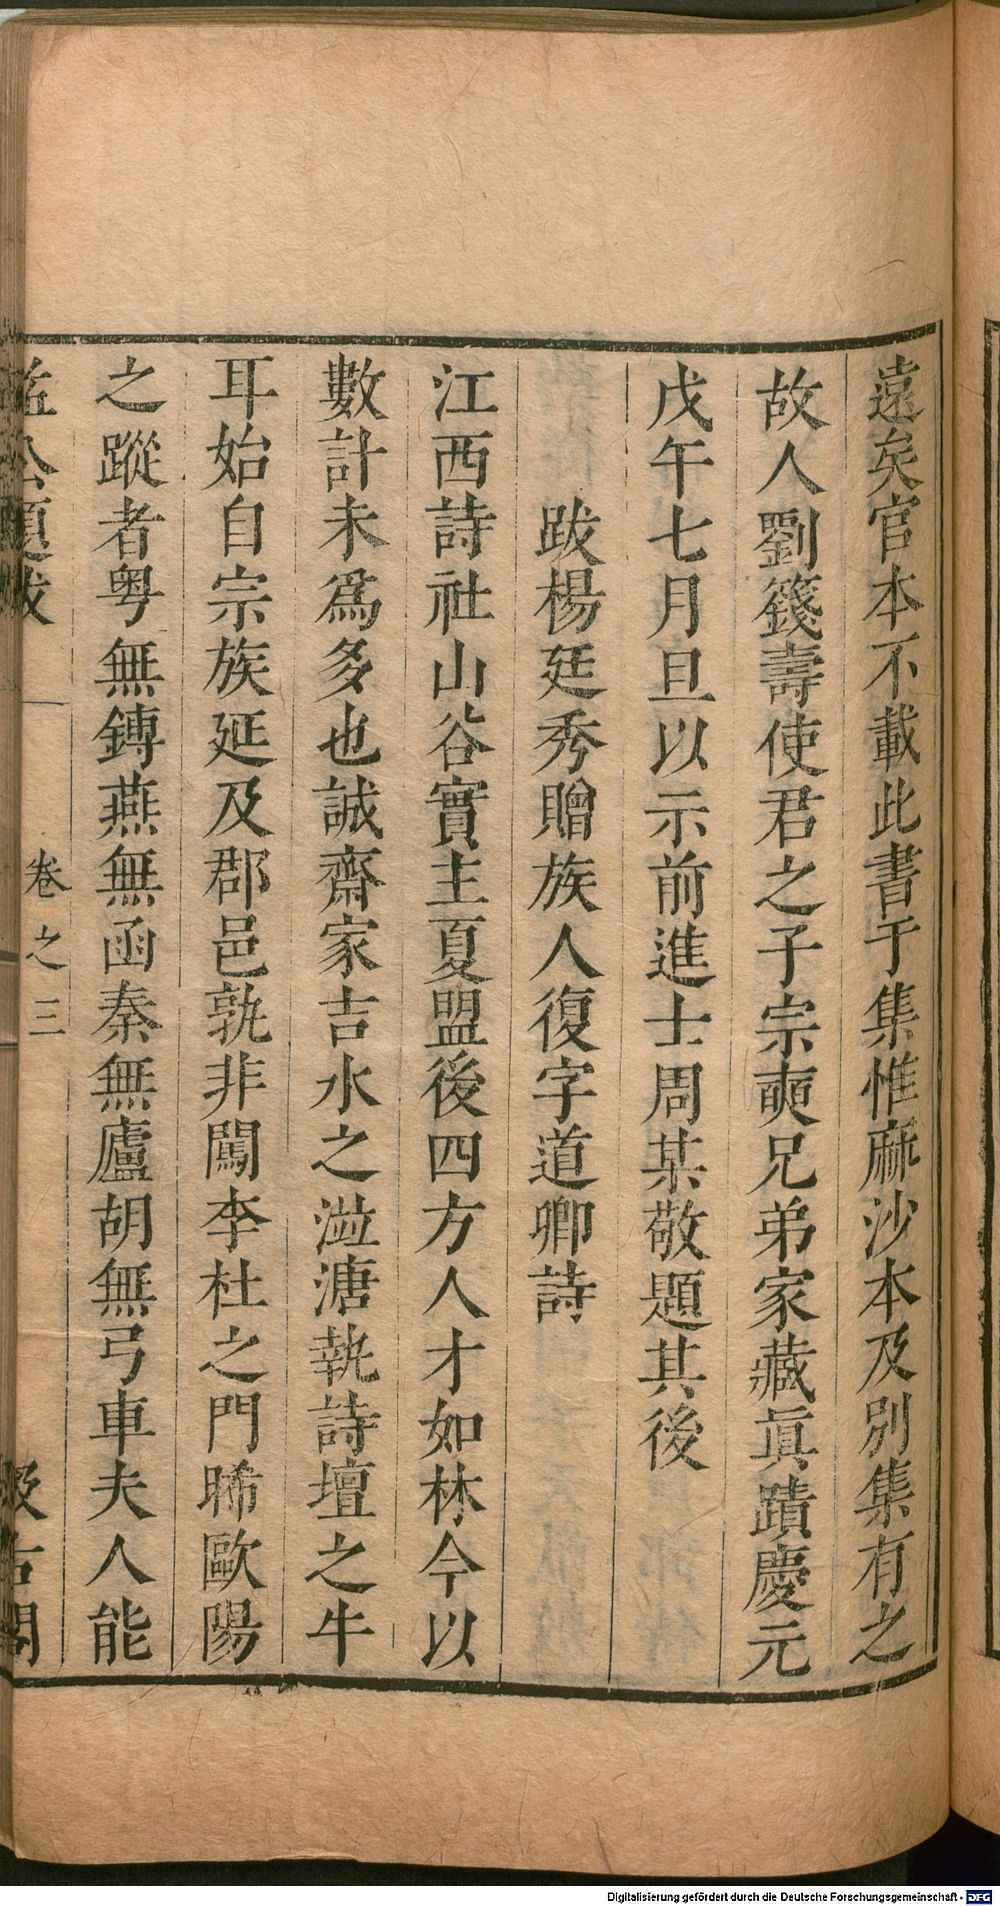 遠矣官本不載此書于集惟麻沙本及別集有之
故人劉籛壽使君之子宗奭兄弟家藏眞蹟慶元
戊午七月旦以示前進士周某敬題其後
跋楊廷秀贈族人復字道卿詩
江西詩社山谷實主夏盟後四方人才如林今以
數計未爲多也誠齋家吉水之湴溏執詩壇之牛
耳始自宗族延及郡邑孰非闖李杜之門晞歐陽
之蹤者粤無鎛燕無函秦無廬胡無弓車夫人能
益公題跋 卷之三 汲古閣
Digitalisierung gefördert durch die Deutsche Forschungsgemeinschaft - DFG